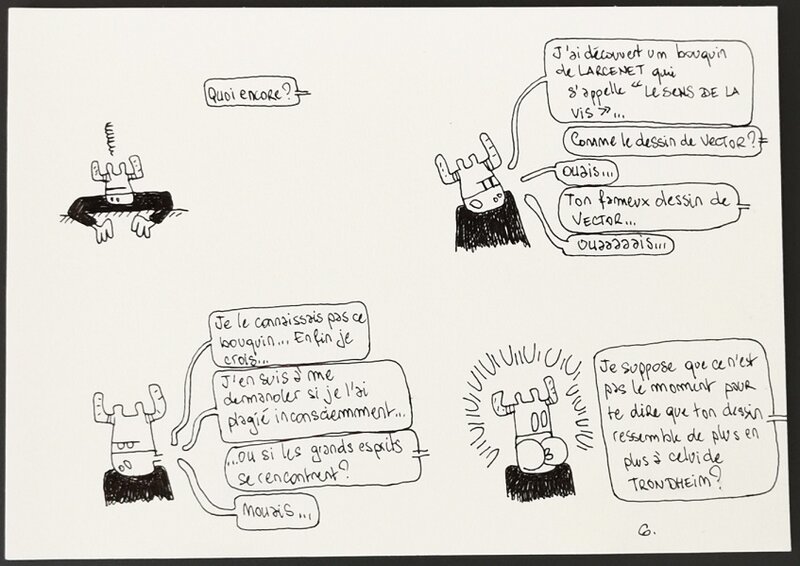 Quoi encore?
J'ai découvert un bouquin
de LARCENET qui
s'appelle "LE SENS DE LA
VIS"...
Comme le dessin de VECTOR?
ouais...
Ton fameux dessin de
VECTOR...
ouaaaais...
Je le connaissais pas ce
bouquin... Enfin je
crois...
J'en suis à me
demander si je l'ai
plagié inconsciemment...
...ou si les grands esprits
se rencontrent?
mouais...
Je suppose que ce n'est
pas le moment pour
te dire que ton dessin
ressemble de plus en
plus à celui de
TRONDHEIM?
6.